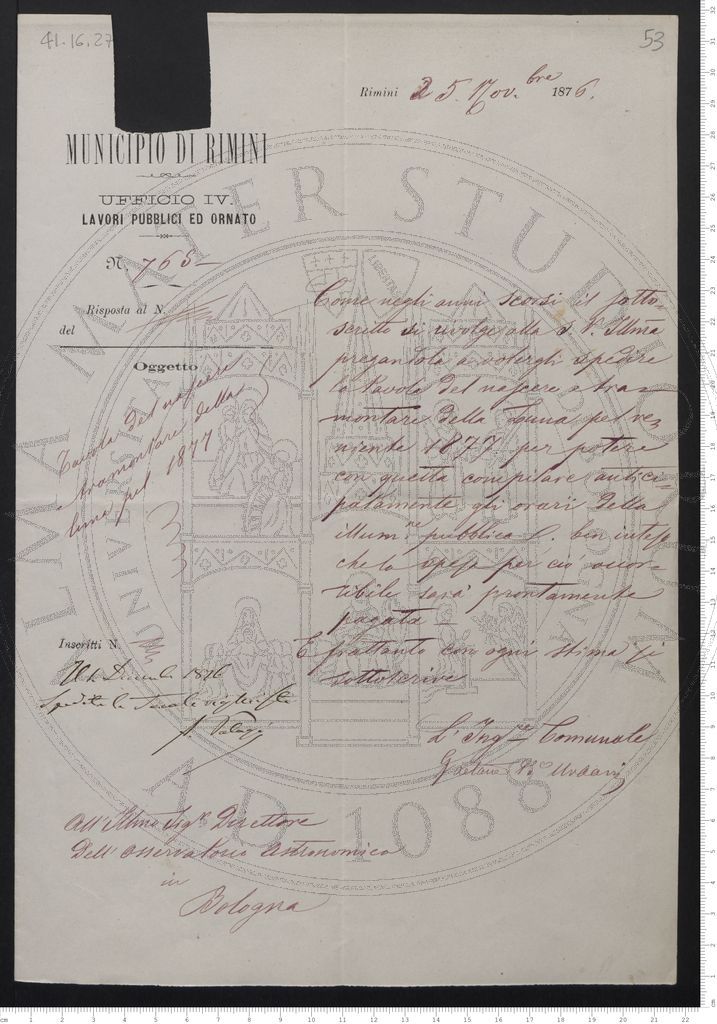 41.16.27
53
Rimini 25. Nov.bre 1876.
MUNICIPIO DI RIMINI
UFFICIO IV.
LAVORI PUBBLICI ED ORNATO
N. 765
Risposta al N.
del
Oggetto
Tavola del nascere
e tramontare della
luna pel 1877
Come negli anni scorsi il sotto-
scritto si rivolge alla S. V. Illma
pregandola a volergli spedire
la tavola del nascere e tra-
montare della Luna pel ve-
niente 1877 per potere
con questa compilare antici-
patamente gli orari della
illum.ne pubblica. Ben inteso
che la spesa per ciò occor-
ribile sarà prontamente
pagata.
E frattanto con ogni stima si
sottoscrive
L'Ing.re Comunale
Gaetano Urbani
Inserti N.
Dicembre 1876
Spedita la Tavola
A. Palagi
All'Illmo Sig.r Direttore
Dell'Osservatorio Astronomico
in
Bologna
ALMA MATER STUDIORUM
A.D. 1088
LIBERTAS